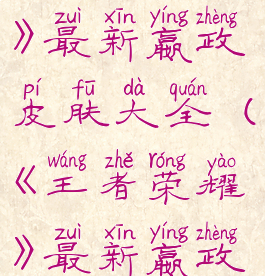 zuì xīn yíng zhèng
》最新嬴政
pí fū dà quán
皮肤大全（
wáng zhě róng yào
《王者荣耀
zuì xīn yíng zhèng
》最新嬴政